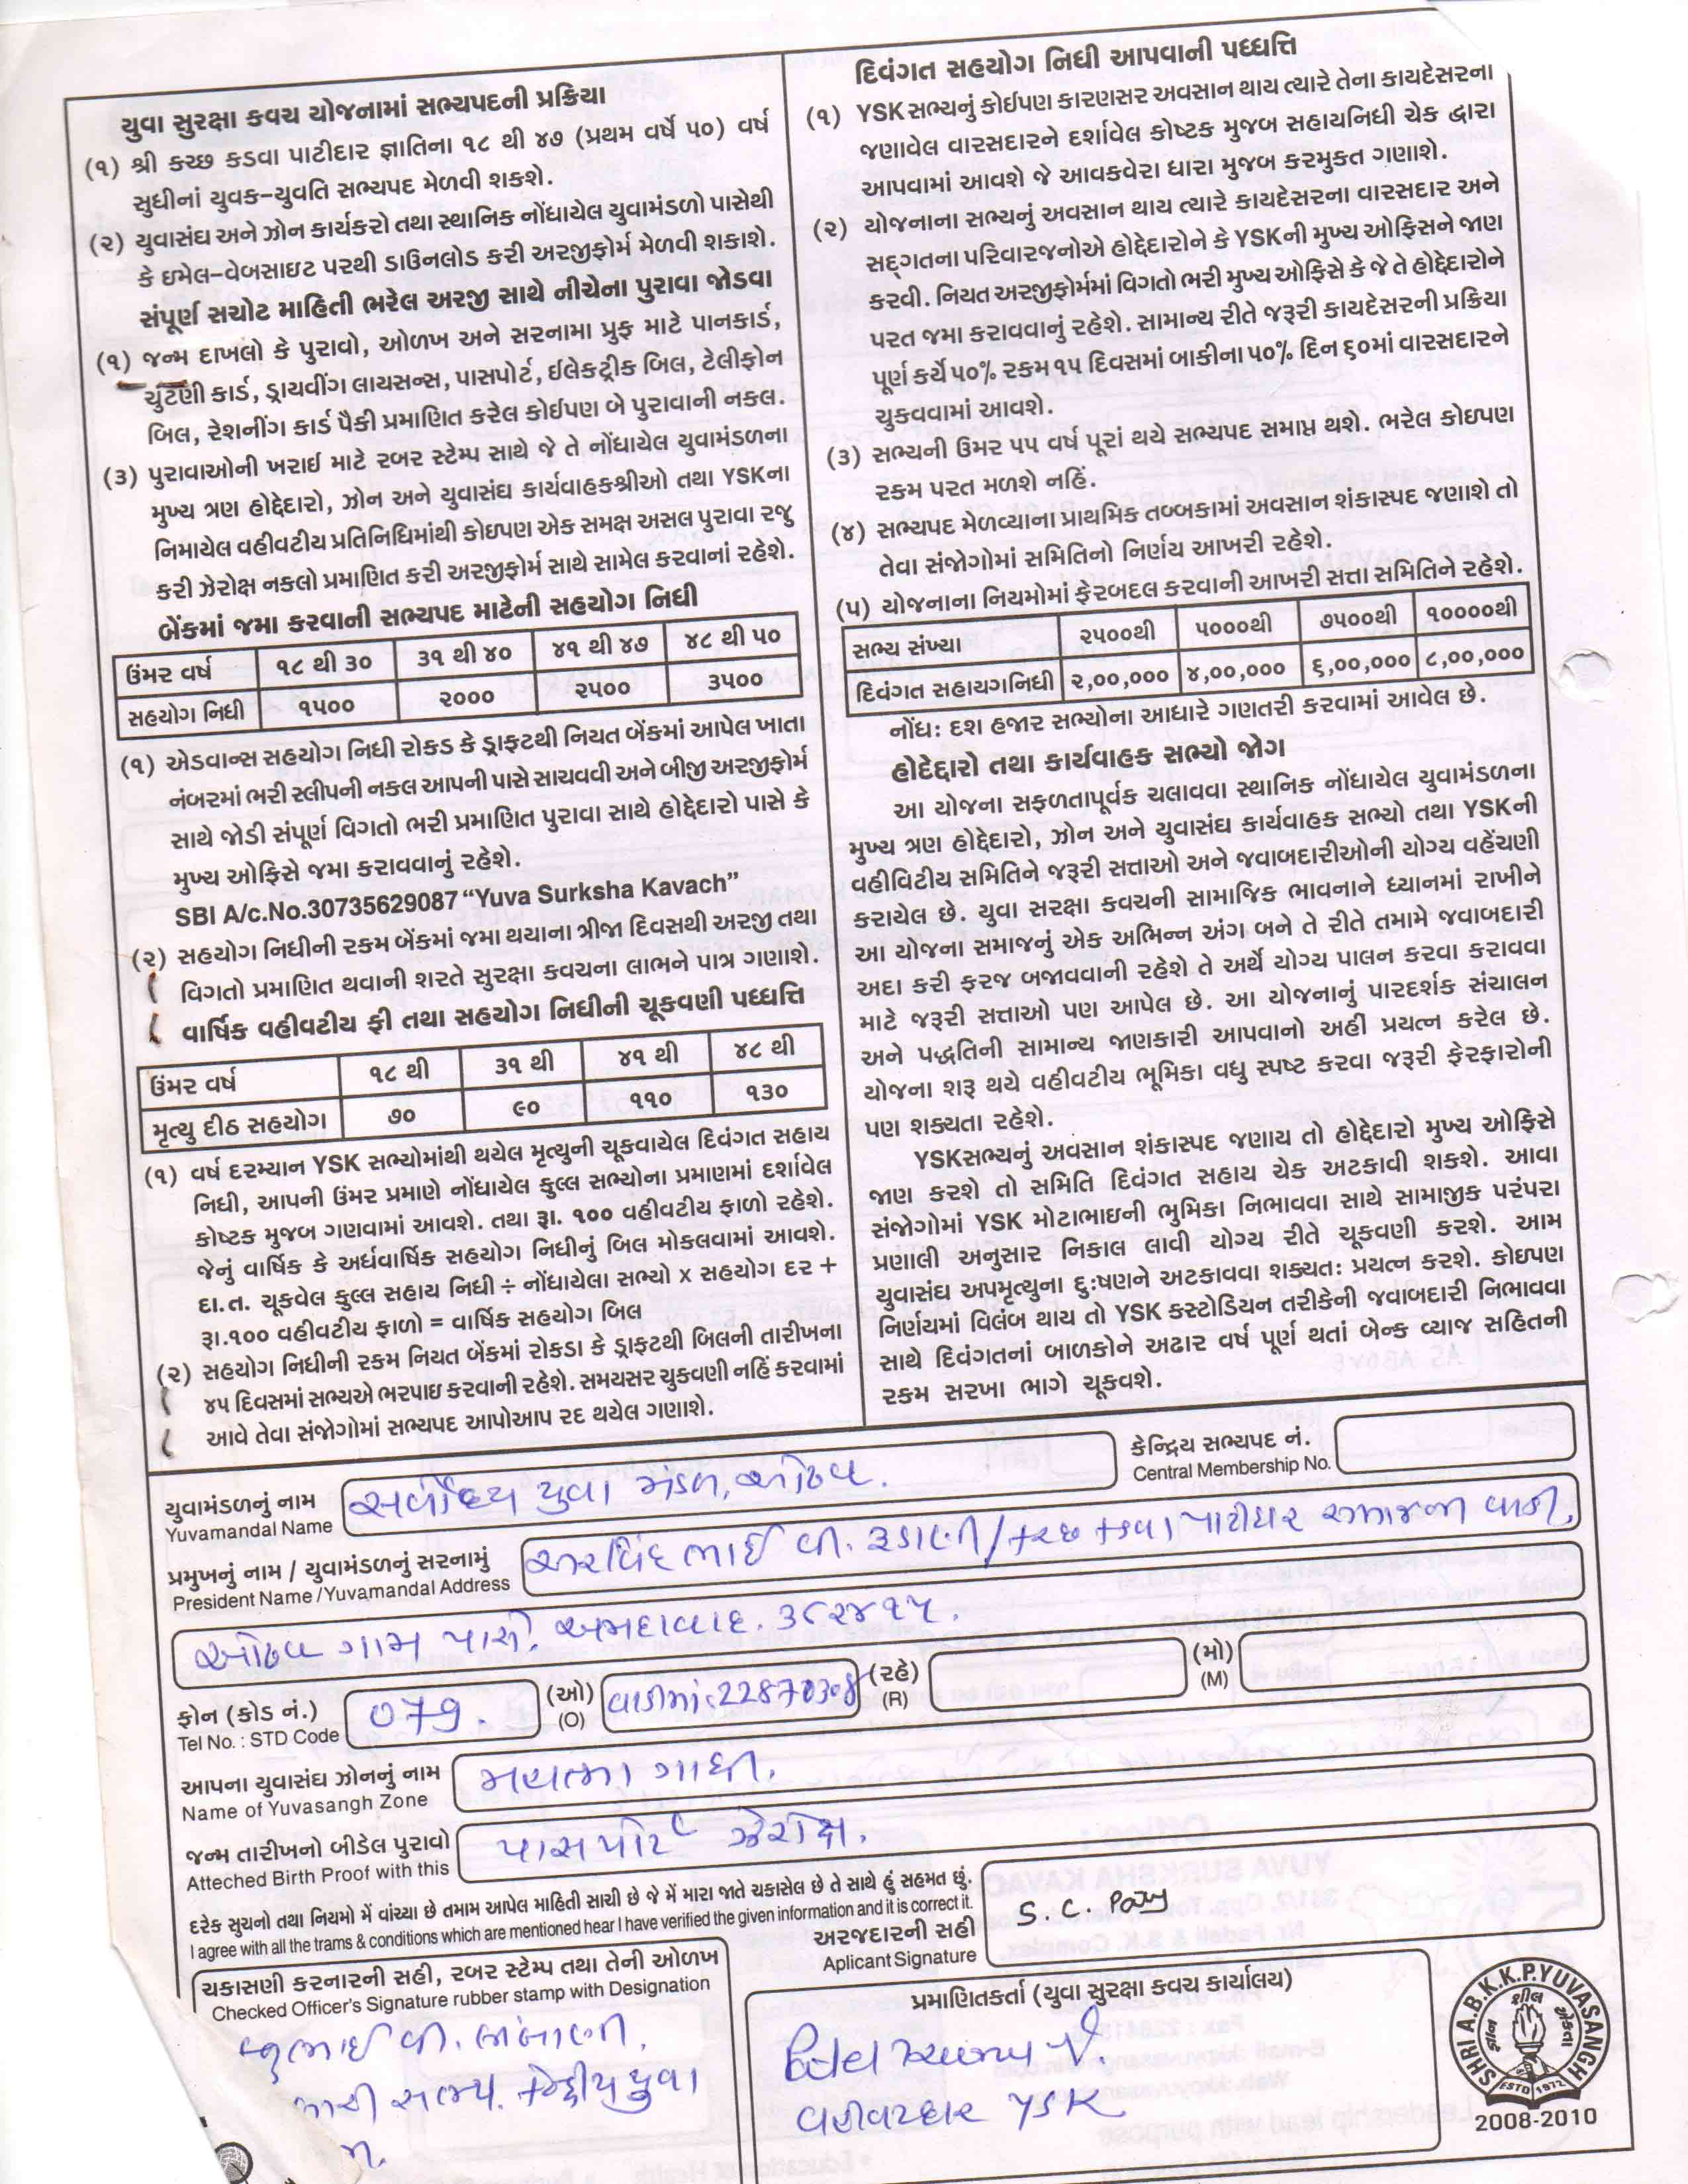 યુવા સુરક્ષા કવચ યોજનામાં સભ્યપદની પ્રક્રિયા
(૧) શ્રી કચ્છ કડવા પાટીદાર જ્ઞાતિના ૧૮ થી ૪૭ (પ્રથમ વર્ષે ૫૦) વર્ષ
સુધીનાં યુવક-યુવતિ સભ્યપદ મેળવી શકશે.
(૨) યુવાસંઘ અને ઝોન કાર્યકરો તથા સ્થાનિક નોંધાયેલ યુવામંડળો પાસેથી
કે ઇમેલ-વેબસાઇટ પરથી ડાઉનલોડ કરી અરજીફોર્મ મેળવી શકાશે.
સંપૂર્ણ સચોટ માહિતી ભરેલ અરજી સાથે નીચેના પુરાવા જોડવા
(૧) જન્મ દાખલો કે પુરાવો, ઓળખ અને સરનામા પ્રુફ માટે પાનકાર્ડ,
ચુંટણી કાર્ડ, ડ્રાયવીંગ લાયસન્સ, પાસપોર્ટ, ઈલેકટ્રીક બિલ, ટેલીફોન
બિલ, રેશનીંગ કાર્ડ પૈકી પ્રમાણિત કરેલ કોઈપણ બે પુરાવાની નકલ.
(૩) પુરાવાઓની ખરાઈ માટે રબર સ્ટેમ્પ સાથે જે તે નોંધાયેલ યુવામંડળના
મુખ્ય ત્રણ હોદ્દેદારો, ઝોન અને યુવાસંઘ કાર્યવાહકશ્રીઓ તથા YSKના
નિમાયેલ વહીવટીય પ્રતિનિધિમાંથી કોઇપણ એક સમક્ષ અસલ પુરાવા રજુ
કરી ઝેરોક્ષ નકલો પ્રમાણિત કરી અરજીફોર્મ સાથે સામેલ કરવાનાં રહેશે.
બેંકમાં જમા કરવાની સભ્યપદ માટેની સહયોગ નિધી
ઉંમર વર્ષ ૧૮ થી ૩૦ ૩૧ થી ૪૦ ૪૧ થી ૪૭ ૪૮ થી ૫૦
સહયોગ નિધી ૧૫૦૦ ૨૦૦૦ ૨૫૦૦ ૩૫૦૦
(૧) એડવાન્સ સહયોગ નિધી રોકડ કે ડ્રાફટથી નિયત બેંકમાં આપેલ ખાતા
નંબરમાં ભરી સ્લીપની નકલ આપની પાસે સાચવવી અને બીજી અરજીફોર્મ
સાથે જોડી સંપૂર્ણ વિગતો ભરી પ્રમાણિત પુરાવા સાથે હોદ્દેદારો પાસે કે
મુખ્ય ઓફિસે જમા કરાવવાનું રહેશે.
SBI A/c.No.30735629087 “Yuva Surksha Kavach”
(૨) સહયોગ નિધીની રકમ બેંકમાં જમા થયાના ત્રીજા દિવસથી અરજી તથા
વિગતો પ્રમાણિત થવાની શરતે સુરક્ષા કવચના લાભને પાત્ર ગણાશે.
વાર્ષિક વહીવટીય ફી તથા સહયોગ નિધીની ચૂકવણી પધ્ધત્તિ
ઉંમર વર્ષ ૧૮ થી ૩૧ થી ૪૧ થી ૪૮ થી
મૃત્યુ દીઠ સહયોગ ૭૦ ૯૦ ૧૧૦ ૧૩૦
(૧) વર્ષ દરમ્યાન YSK સભ્યોમાંથી થયેલ મૃત્યુની ચૂકવાયેલ દિવંગત સહાય
નિધી, આપની ઉંમર પ્રમાણે નોંધાયેલ કુલ્લ સભ્યોના પ્રમાણમાં દર્શાવેલ
કોષ્ટક મુજબ ગણવામાં આવશે. તથા રૂા. ૧૦૦ વહીવટીય ફાળો રહેશે.
જેનું વાર્ષિક કે અર્ધવાર્ષિક સહયોગ નિધીનું બિલ મોકલવામાં આવશે.
દા.ત. ચૂકવેલ કુલ્લ સહાય નિધી ÷ નોંધાયેલા સભ્યો x સહયોગ દર +
રૂા.૧૦૦ વહીવટીય ફાળો = વાર્ષિક સહયોગ બિલ
(૨) સહયોગ નિધીની રકમ નિયત બેંકમાં રોકડા કે ડ્રાફટથી બિલની તારીખના
૪૫ દિવસમાં સભ્યએ ભરપાઇ કરવાની રહેશે. સમયસર ચુકવણી નહિં કરવામાં
આવે તેવા સંજોગોમાં સભ્યપદ આપોઆપ રદ થયેલ ગણાશે.
દિવંગત સહયોગ નિધી આપવાની પધ્ધત્તિ
(૧) YSK સભ્યનું કોઈપણ કારણસર અવસાન થાય ત્યારે તેના કાયદેસરના
જણાવેલ વારસદારને દર્શાવેલ કોષ્ટક મુજબ સહાયનિધી ચેક દ્વારા
આપવામાં આવશે જે આવકવેરા ધારા મુજબ કરમુકત ગણાશે.
(૨) યોજનાના સભ્યનું અવસાન થાય ત્યારે કાયદેસરના વારસદાર અને
સદ્ગતના પરિવારજનોએ હોદ્દેદારોને કે YSKની મુખ્ય ઓફિસને જાણ
કરવી. નિયત અરજીફોર્મમાં વિગતો ભરી મુખ્ય ઓફિસે કે જે તે હોદ્દેદારોને
પરત જમા કરાવવાનું રહેશે. સામાન્ય રીતે જરૂરી કાયદેસરની પ્રક્રિયા
પૂર્ણ કર્યે ૫૦% રકમ ૧૫ દિવસમાં બાકીના ૫૦% દિન ૬૦માં વારસદારને
ચુકવવામાં આવશે.
(૩) સભ્યની ઉંમર ૫૫ વર્ષ પૂરાં થયે સભ્યપદ સમાપ્ત થશે. ભરેલ કોઇપણ
રકમ પરત મળશે નહિં.
(૪) સભ્યપદ મેળવ્યાના પ્રાથમિક તબ્બકામાં અવસાન શંકાસ્પદ જણાશે તો
તેવા સંજોગોમાં સમિતિનો નિર્ણય આખરી રહેશે.
(૫) યોજનાના નિયમોમાં ફેરબદલ કરવાની આખરી સત્તા સમિતિને રહેશે.
સભ્ય સંખ્યા ૨૫૦૦થી ૫૦૦૦થી ૭૫૦૦થી ૧૦૦૦૦થી
દિવંગત સહાયગનિધી ૨,૦૦,૦૦૦ ૪,૦૦,૦૦૦ ૬,૦૦,૦૦૦ ૮,૦૦,૦૦૦
નોંધ: દશ હજાર સભ્યોના આધારે ગણતરી કરવામાં આવેલ છે.
હોદેદ્દારો તથા કાર્યવાહક સભ્યો જોગ
આ યોજના સફળતાપૂર્વક ચલાવવા સ્થાનિક નોંધાયેલ યુવામંડળના
મુખ્ય ત્રણ હોદ્દેદારો, ઝોન અને યુવાસંઘ કાર્યવાહક સભ્યો તથા YSKની
વહીવિટીય સમિતિને જરૂરી સત્તાઓ અને જવાબદારીઓની યોગ્ય વહેંચણી
કરાયેલ છે. યુવા સરક્ષા કવચની સામાજિક ભાવનાને ધ્યાનમાં રાખીને
આ યોજના સમાજનું એક અભિન્ન અંગ બને તે રીતે તમામે જવાબદારી
અદા કરી ફરજ બજાવવાની રહેશે તે અર્થે યોગ્ય પાલન કરવા કરાવવા
માટે જરૂરી સત્તાઓ પણ આપેલ છે. આ યોજનાનું પારદર્શક સંચાલન
અને પદ્ધતિની સામાન્ય જાણકારી આપવાનો અહીં પ્રયત્ન કરેલ છે.
યોજના શરૂ થયે વહીવટીય ભૂમિકા વધુ સ્પષ્ટ કરવા જરૂરી ફેરફારોની
પણ શક્યતા રહેશે.
YSKસભ્યનું અવસાન શંકાસ્પદ જણાય તો હોદ્દેદારો મુખ્ય ઓફિસે
જાણ કરશે તો સમિતિ દિવંગત સહાય ચેક અટકાવી શકશે. આવા
સંજોગોમાં YSK મોટાભાઇની ભુમિકા નિભાવવા સાથે સામાજીક પરંપરા
પ્રણાલી અનુસાર નિકાલ લાવી યોગ્ય રીતે ચૂકવણી કરશે. આમ
યુવાસંઘ અપમૃત્યુના દુઃષણને અટકાવવા શક્યતઃ પ્રયત્ન કરશે. કોઇપણ
નિર્ણયમાં વિલંબ થાય તો YSK કસ્ટોડિયન તરીકેની જવાબદારી નિભાવવા
સાથે દિવંગતનાં બાળકોને અઢાર વર્ષ પૂર્ણ થતાં બેન્ક વ્યાજ સહિતની
રકમ સરખા ભાગે ચૂકવશે.
કેન્દ્રિય સભ્યપદ નં.
Central Membership No.
યુવામંડળનું નામ સર્વોદય યુવા મંડળ, ઓઢવ.
Yuvamandal Name
પ્રમુખનું નામ / યુવામંડળનું સરનામું અરવિંદભાઈ વી. રૂડાણી/કચ્છ કડવા પાટીદાર સમાજની વાડી,
President Name /Yuvamandal Address
ઓઢવ ગામ પાસે, અમદાવાદ. ૩૮૨૪૧૫.
ફોન (કોડ નં.) ૦૭૯. (ઓ) વાડીમાં: (રહે) (મો)
Tel No. : STD Code (O) (R) (M)
આપના યુવાસંઘ ઝોનનું નામ મહાત્મા ગાંધી.
Name of Yuvasangh Zone
જન્મ તારીખનો બીડેલ પુરાવો પાસપોર્ટ ઝેરોક્ષ.
Atteched Birth Proof with this
દરેક સુચનો તથા નિયમો મેં વાંચ્યા છે તમામ આપેલ માહિતી સાચી છે જે મેં મારા જાતે ચકાસેલ છે તે સાથે હું સહમત છું.
I agree with all the trams & conditions which are mentioned hear I have verified the given information and it is correct it.
અરજદારની સહી S. C.
Aplicant Signature
ચકાસણી કરનારની સહી, રબર સ્ટેમ્પ તથા તેની ઓળખ
Checked Officer's Signature rubber stamp with Designation
વી. લીંબાણી.
સભ્ય. કેન્દ્રીય યુવા
પ્રમાણિતકર્તા (યુવા સુરક્ષા કવચ કાર્યાલય)
વહીવટદાર YSK
SHRI A.B.K.K.P.YUVASANGH
ESTD 1972
2008-2010